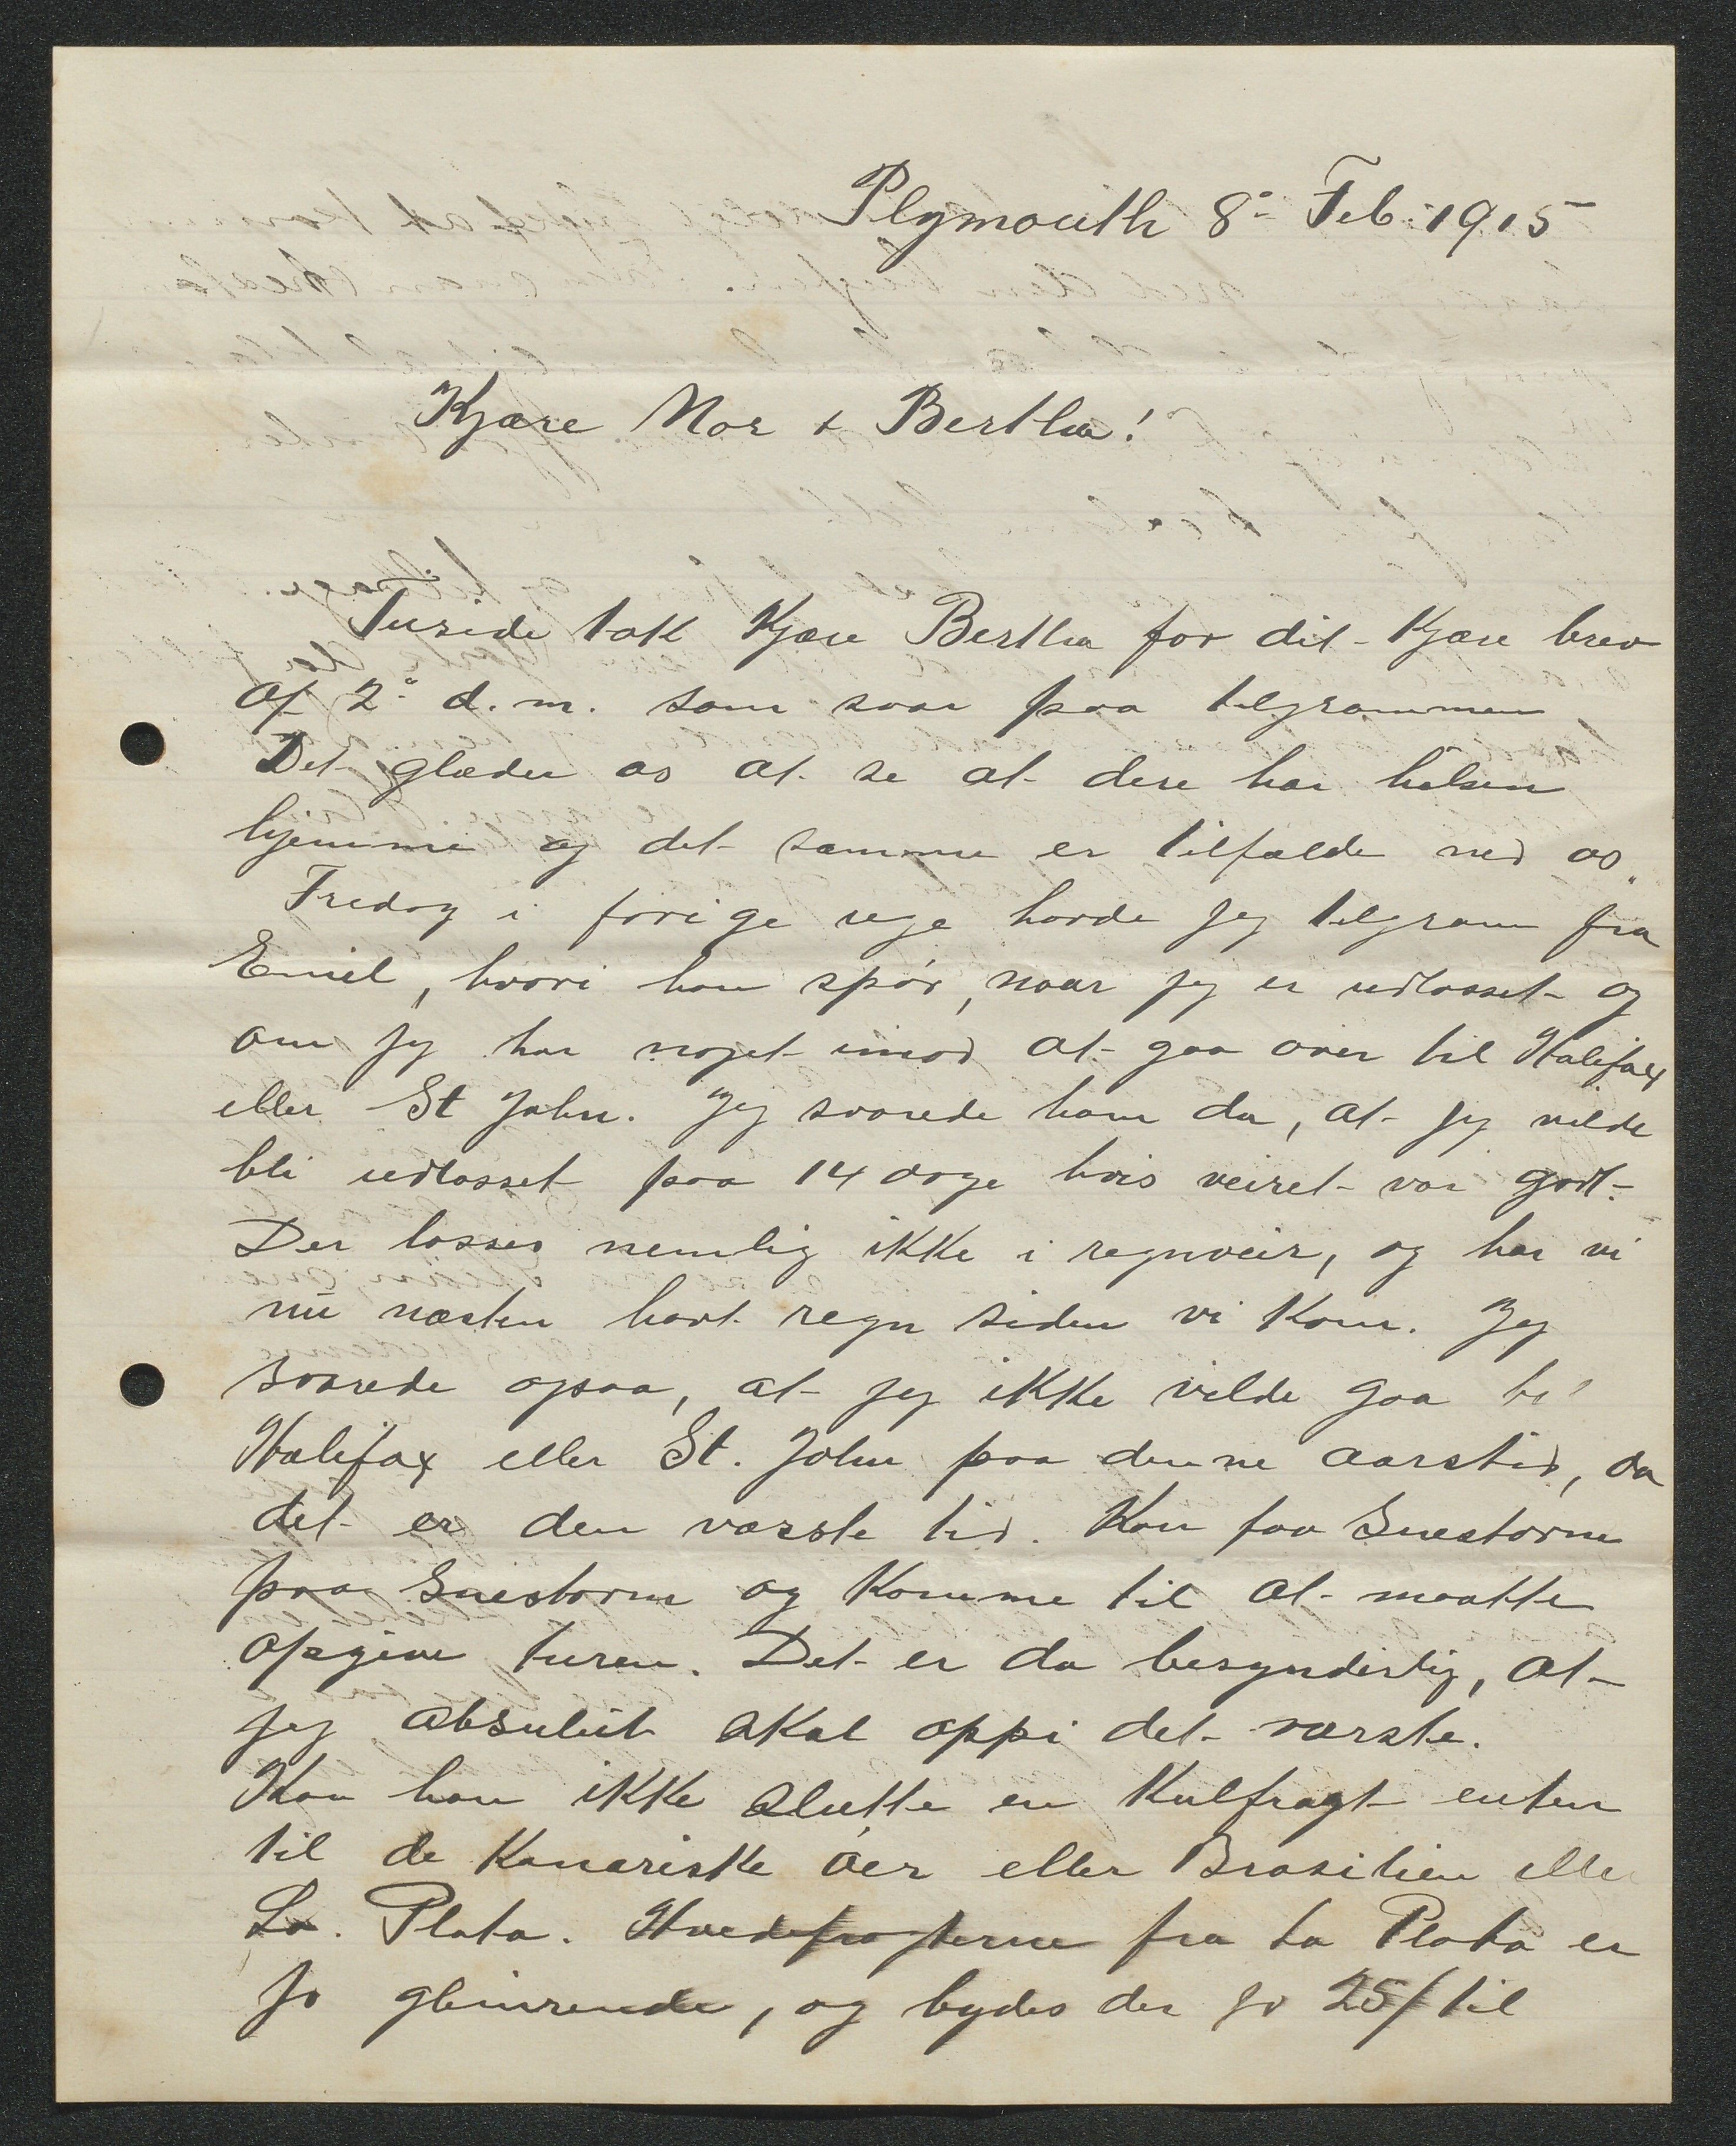 Plymouth 8de Feb. 1915
Kjære Mor & Bertha!
Tuside tak Kjære Bertha for dit Kjære brev
af 2de d.m. som svar paa telgrammen
Det glæder os at se at dere har helsen
hjemme og det samme er tilfælde med os.
Fredag i forige uge havde jeg telgram fra
Emil, hvori han spör, naar jeg er udlosset og
om jeg har noget imod at gaa over til Halifax
eller St John. Jeg svarede ham da, at jeg vilde
bli udlosset paa 14 dage hvis veiret var godt.
Der losses nemlig ikke i regnveir, og har vi
nu næsten havt regn siden vi kom. Jeg
svarede ogsaa, at jeg ikke vilde gaa til
Halifax eller St. John paa denne aarstid, da
det er den værste tid. Kan faa Snestorm
paa Snestorm og komme til at maatte
opgive turen. Det er da besynderlig, at
jeg absulut skal oppi det værste.
Kan han ikke slutte en Kulfragt enten
til de Kanariske Öer eller Brasilien eller
La. Plata. Hvedefragterne fra La Plata er
jo glimrende, og bydes der jo 25/ til